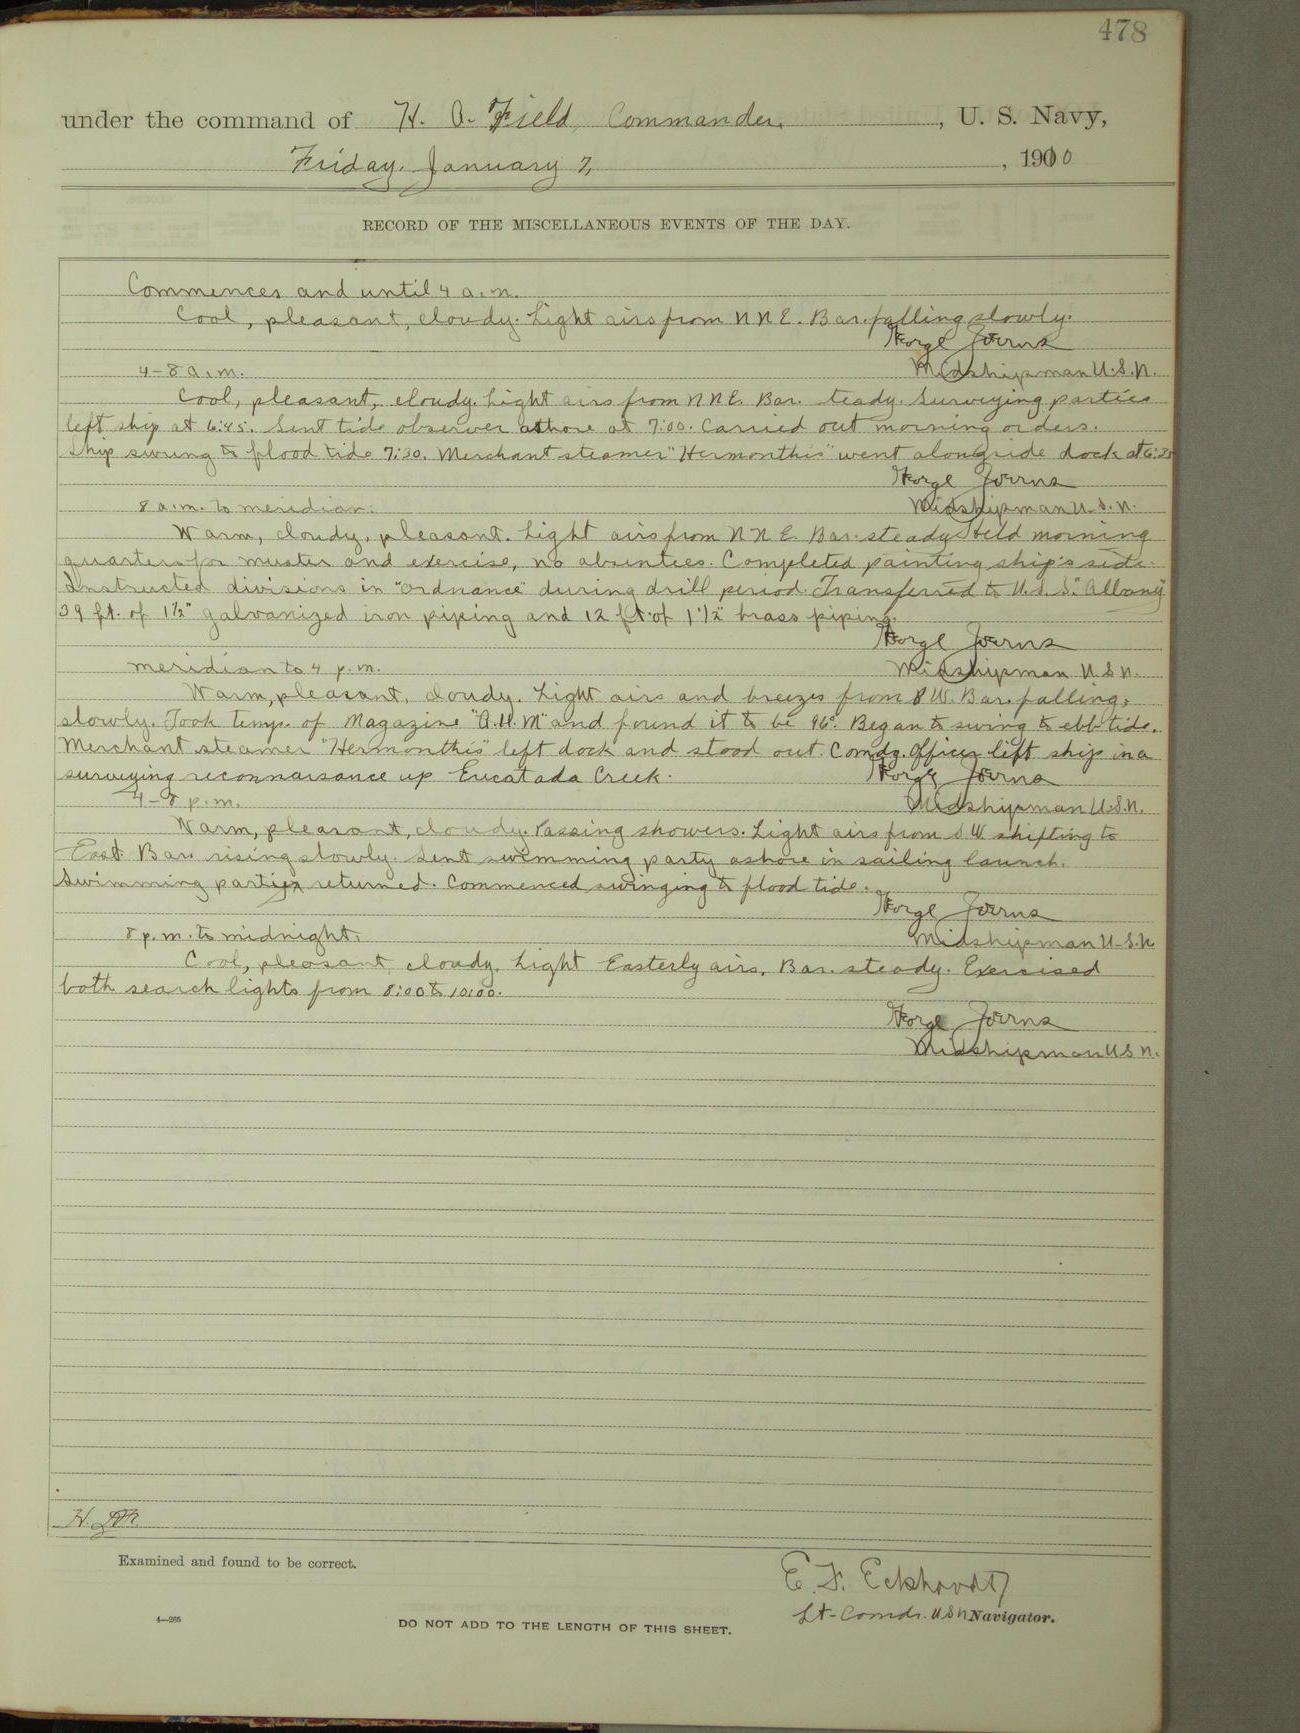 478
under the command of H. A. Field, Commander, , U. S. Navy,
Friday, January 7, , 1910
RECORD OF THE MISCELLANEOUS EVENTS OF THE DAY.
Commences and until 4 a.m.
Cool, pleasant, cloudy. Light airs from N N E. Bar. falling slowly.
George Joerns
Midshipman U.S.N.
4-8 a.m.
Cool, pleasant, cloudy. Light airs from N N E. Bar. steady. Surveying parties
left ship at 6:45. Sent tide observer ashore at 7:00. Carried out morning orders.
Ship swung to flood tide 7:30. Merchant steamer "Hermonthis" went alongside dock at 6:25
George Joerns
Midshipman U.S.N.
8 a.m. to meridian:
Warm, cloudy, pleasant. Light airs from N N E. Bar. steady. Held morning
quarters for muster and exercise, no absentees. Completed painting ship's side.
Instructed divisions in "ordnance" during drill period. Transferred to U.S.S. "Albany"
39 ft. of 1½" galvanized iron piping and 12 ft. of 1 1/2" brass piping.
George Joerns
Midshipman U.S.N.
meridian to 4 p.m.
Warm, pleasant, cloudy. Light airs and breezes from S W. Bar. falling,
slowly. Took temp. of Magazine "A.H.M" and found it to be 96°. Began to swing to ebb tide.
Merchant steamer "Hermonthis" left dock and stood out. Comdg. Officer left ship in a
surveying reconnaisance up Creek.
George Joerns
Midshipman U.S.N.
4-8 p.m.
Warm, pleasant, cloudy. Passing showers. Light airs from S.W. shifting to
East. Bar. rising slowly. Sent swimming party ashore in sailing launch.
Swimming party returned. Commenced swinging to flood tide.
George Joerns
Midshipman U.S.N
8 p.m. to midnight:
Cool, pleasant, cloudy. Light Easterly airs. Bar. steady. Exercised
both search lights from 8:00 to 10:00.
George Joerns
Midshipman U S N.
Examined and found to be correct.
E. F. Eckhardt
Lt-Comdr. U S N Navigator.
4—265
DO NOT ADD TO THE LENGTH OF THIS SHEET.